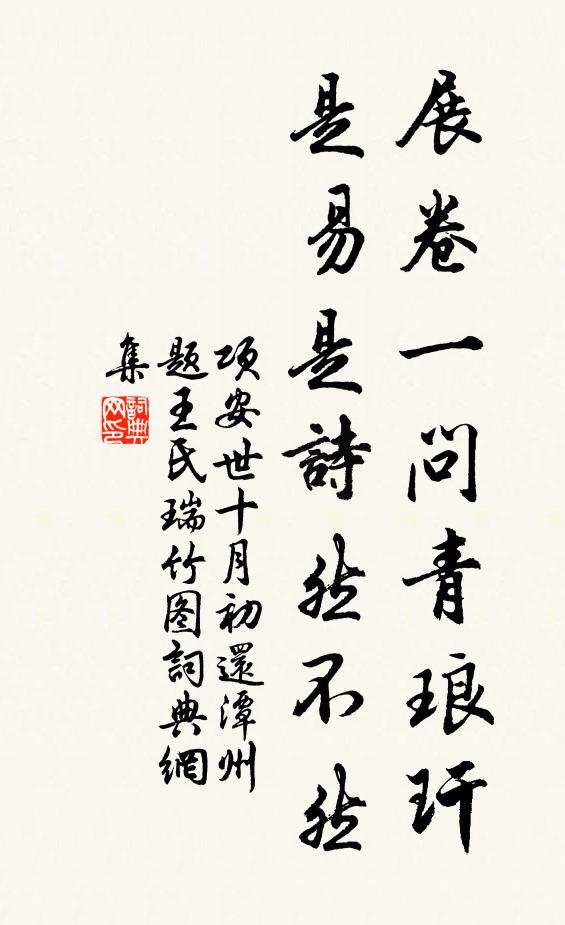 展卷一問青琅玕
是易是詩然不然
項安世十月初還潭州
題王氏瑞竹图詞典網
集
詞典
网印